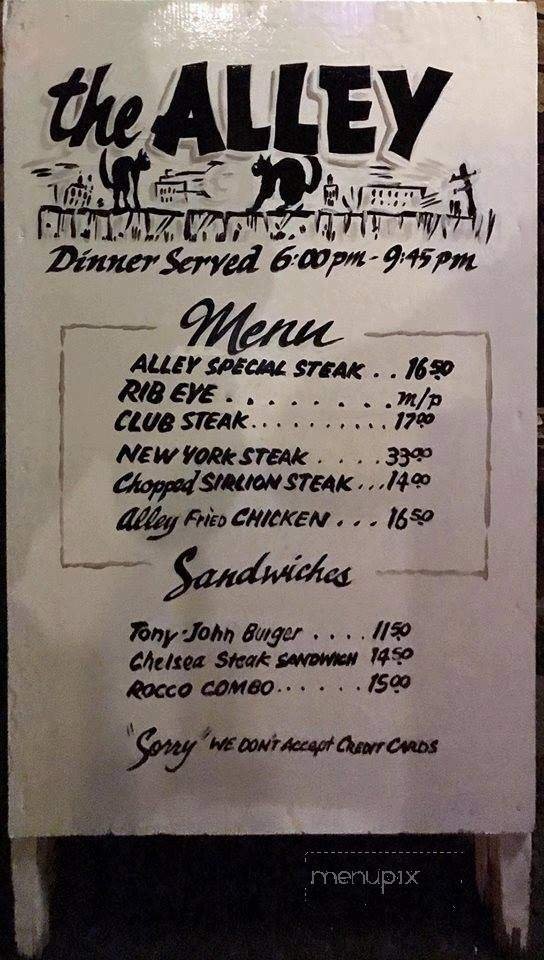 the ALLEY
Dinner Served 6:00 pm - 9:45 pm
Menu
ALLEY SPECIAL STEAK . . 16 50
RIB EYE . . . . . . . . . m/p
CLUB STEAK . . . . . . . . . . 17 00
NEW YORK STEAK . . . . . 33 00
Chopped SIRLION STEAK . . . 14 00
Alley Fried CHICKEN . . . 16 50
Sandwiches
Tony-John Burger . . . . 11 50
Chelsea Steak SANDWICH 14 50
ROCCO COMBO . . . . . . 15 00
"Sorry" WE DON'T Accept CREDIT CARDS
menupix